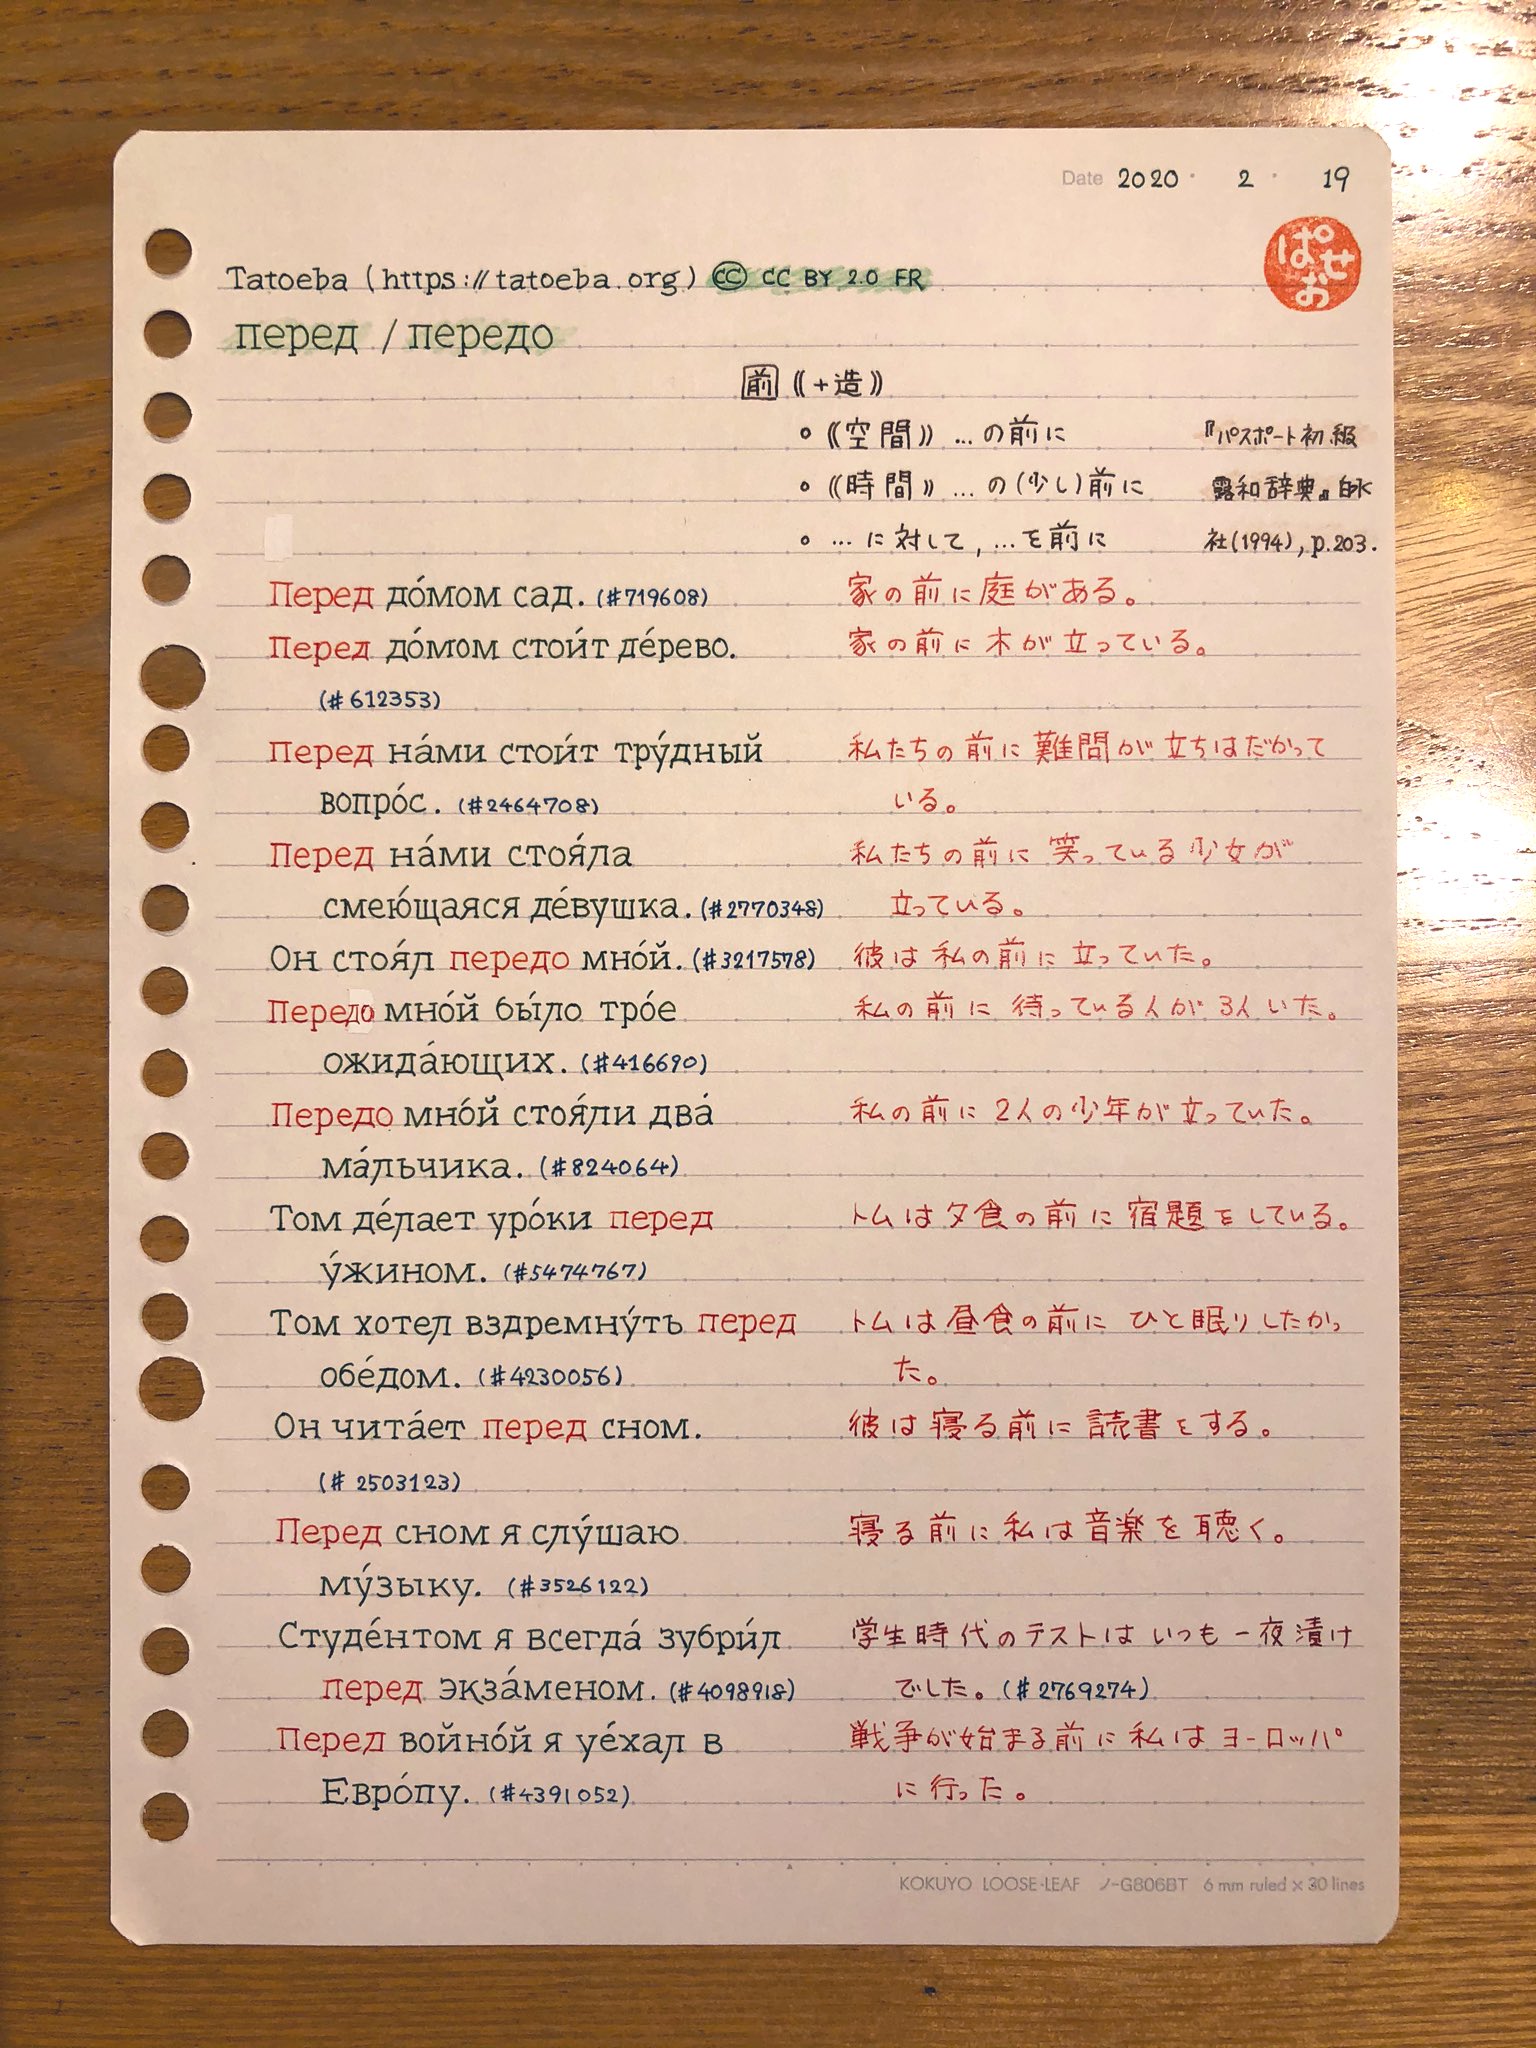 Date 2020 2 19
ぱせお
Tatoeba (https://tatoeba.org) CC CC BY 2.0 FR
перед / передо
前 ⟪+造⟫
• ⟪空間⟫ …の前に 『パスポート初級
• ⟪時間⟫ …の(少し)前に 露和辞典』白水
• …に対して, …を前に 社(1994), p.203.
Перед до́мом сад. (#719608) 家の前に庭がある。
Перед до́мом стои́т де́рево. 家の前に木が立っている。
(#612353)
Перед на́ми стои́т тру́дный 私たちの前に難問が立ちはだかって
вопро́с. (#2464708) いる。
Перед на́ми стоя́ла 私たちの前に笑っている少女が
смею́щаяся де́вушка. (#2770348) 立っている。
Он стоя́л передо мно́й. (#3217578) 彼は私の前に立っていた。
Передо мно́й бы́ло тро́е 私の前に待っている人が3人いた。
ожида́ющих. (#416690)
Передо мно́й стоя́ли два́ 私の前に2人の少年が立っていた。
ма́льчика. (#824064)
Том де́лает уро́ки перед トムは夕食の前に宿題をしている。
у́жином. (#5474767)
Том хотел вздремну́ть перед トムは昼食の前にひと眠りしたかっ
обе́дом. (#4230056) た。
Он чита́ет перед сном. 彼は寝る前に読書をする。
(#2503123)
Перед сном я слу́шаю 寝る前に私は音楽を聴く。
му́зыку. (#3526122)
Студе́нтом я всегда́ зубри́л 学生時代のテストはいつも一夜漬け
перед экза́меном. (#4098918) でした。(#2769274)
Перед войно́й я уе́хал в 戦争が始まる前に私はヨーロッパ
Евро́пу. (#4391052) に行った。
KOKUYO LOOSE-LEAF ノ-G806BT 6 mm ruled × 30 lines